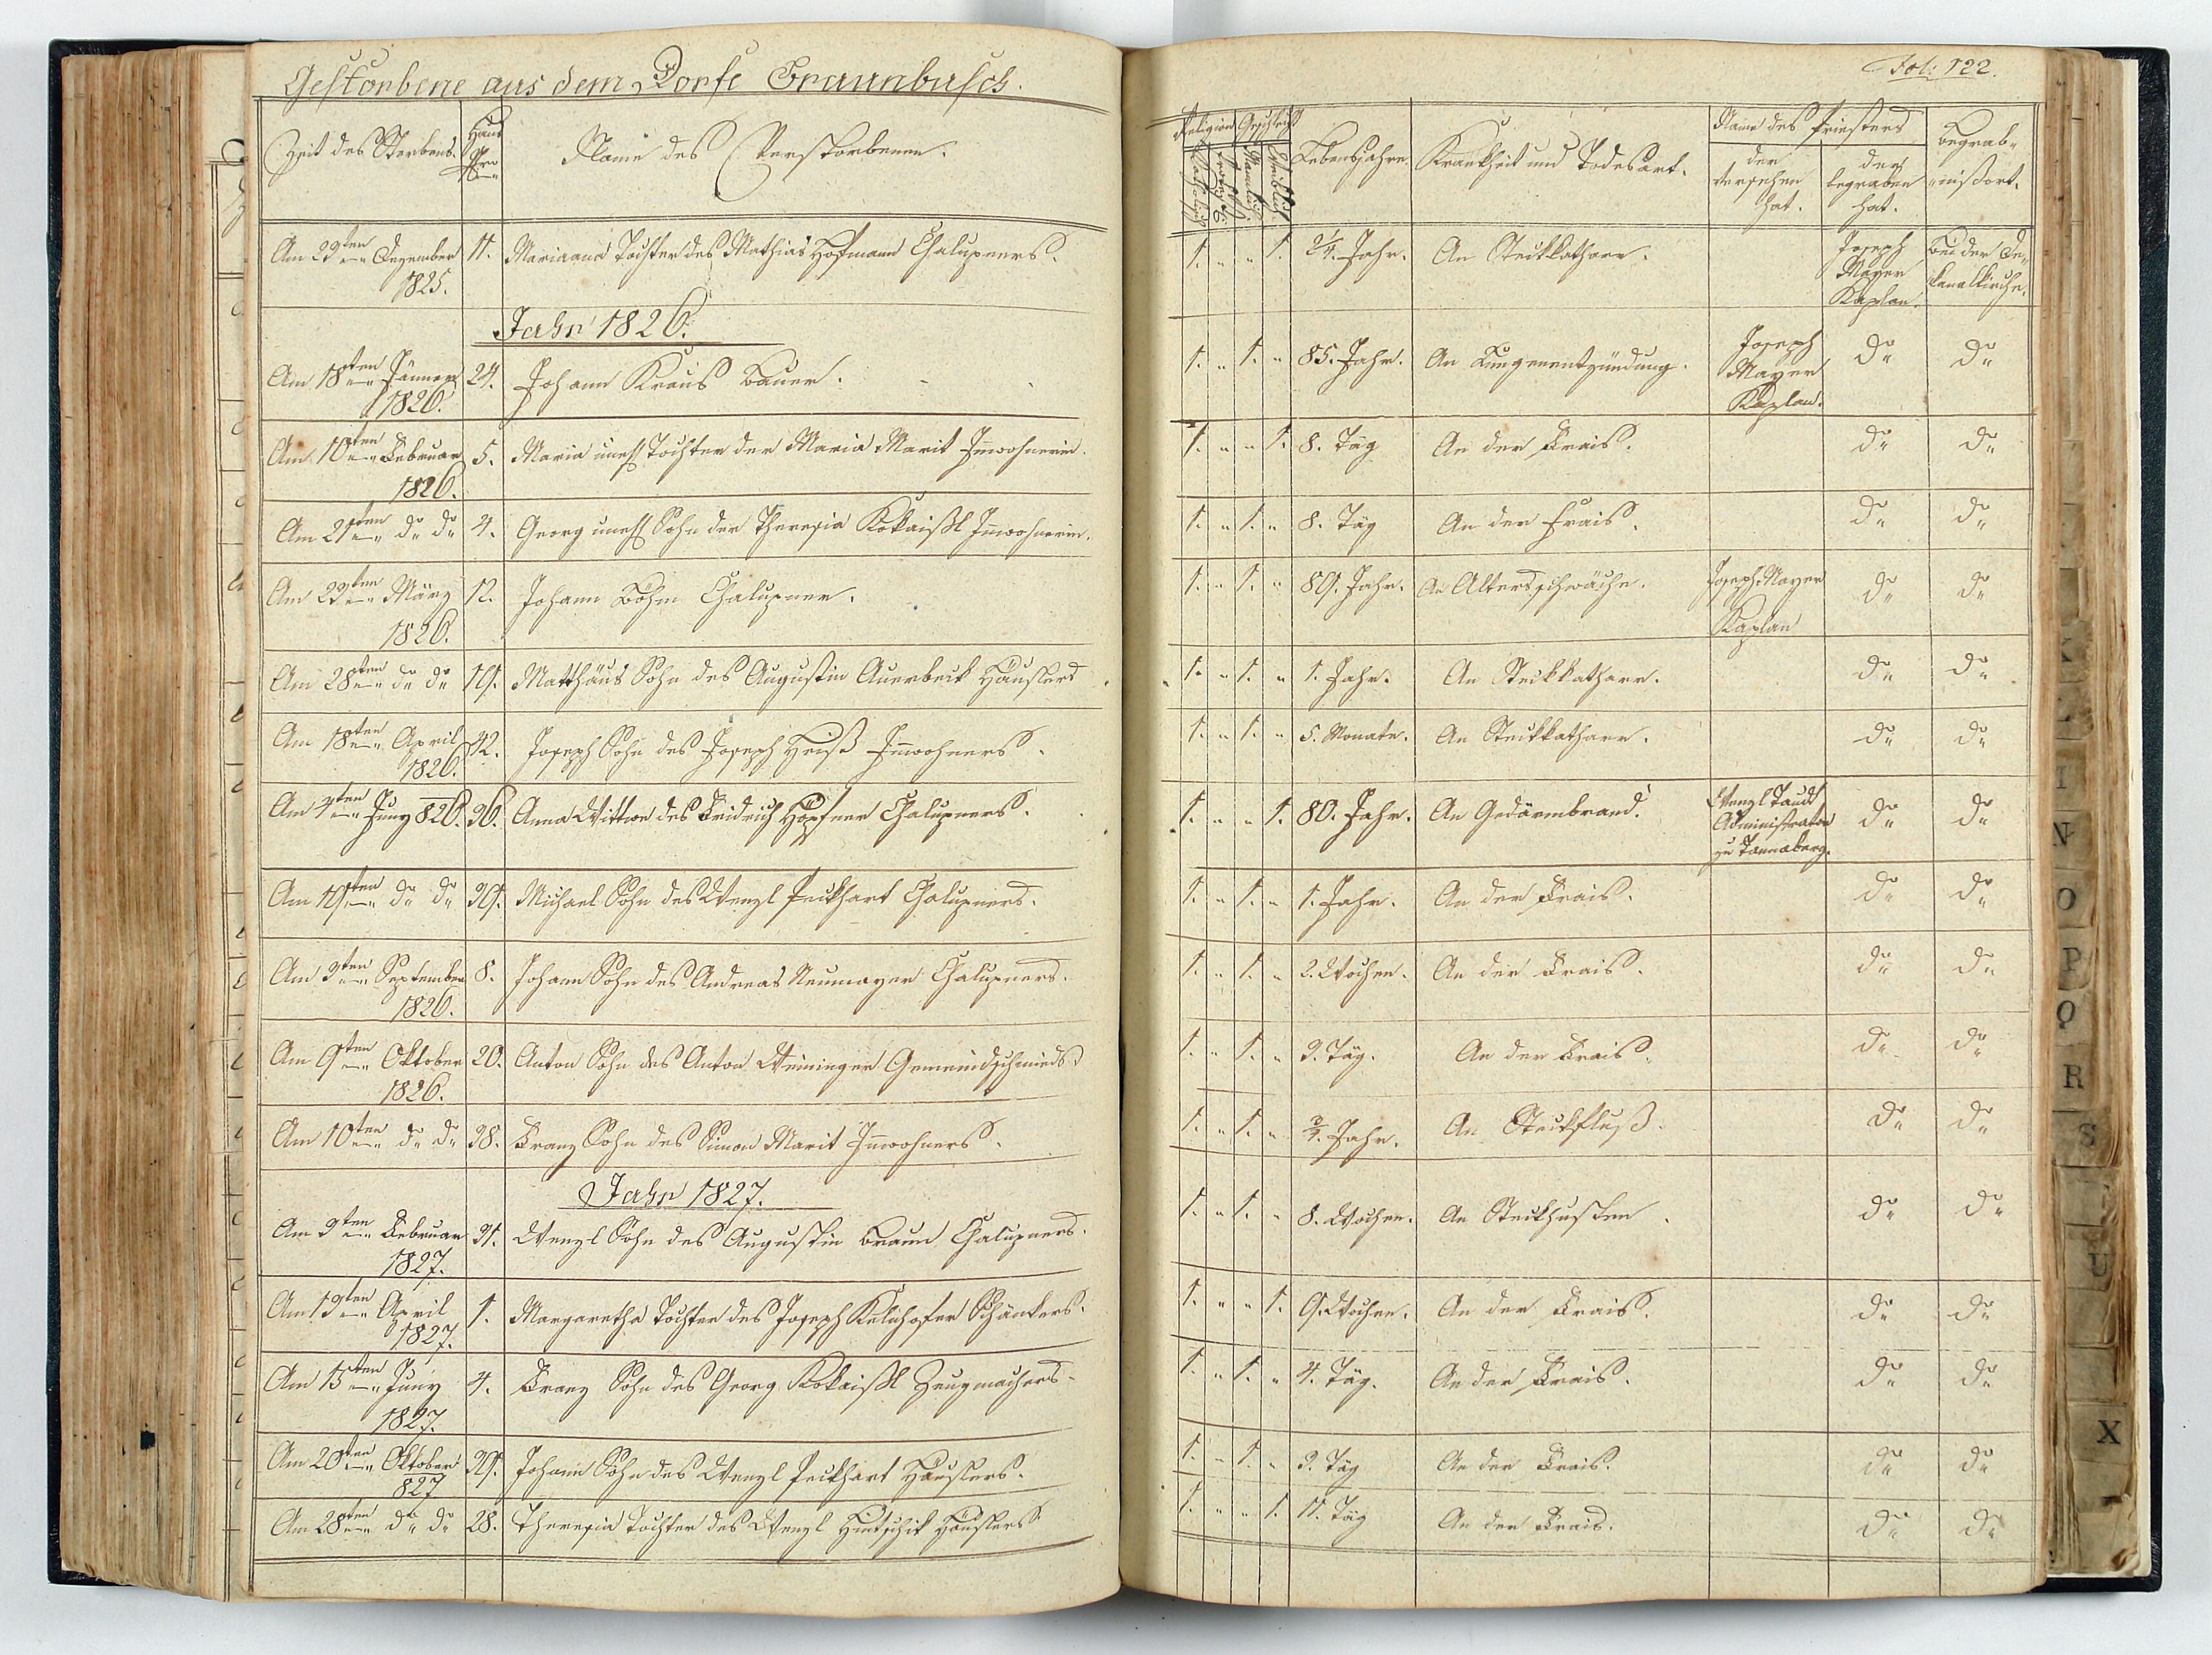 Gestorbene aus dem Dorfe Braunbusch.
Fol: 122.
Zeit des Sterbens.
Haus Nro
Name des Verstorbenen.
Religion
Geschlecht
Katholisch
Männlich
Weiblich
Lebensjahre.
Krankheit und Todesart.
Name des Priesters
der versehen hat.
der begraben hat.
Begräb-
nißort.
Am 29ten Dezember 1825. 11. Marianna Tochter des Mathias Hofmann Chalupners. 1. „ „ 1. 2¼. Jahr. An Steckkatharr. Joseph Mayer Kaplan. Bei der De-
kanalkirche.
Jahr 1826.
Am 18ten Jänner 1826. 24. Johann Kraus Bauer. 1. „ 1. „ 85. Jahr. An Lungenentzündung. Joseph Mayer Kaplan. do do
Am 10ten Februar 1826. 5. Maria unehl Tochter der Maria Marit Innwohnerin. 1. „ „ 1. 8. Täg An der Frais. do do
Am 21ten do do 4. Georg unehl Sohn der Theresia Kokaißl Innwohnerin. 1. „ 1. „ 8. Täg An der Frais. do do
Am 29ten März 1826. 12. Johann Böhm Chalupner. 1. „ 1. „ 89. Jahr. An Altersschwäche. Joseph Mayer Kaplan do do
Am 28ten do do 19. Matthäus Sohn des Augustin Auerbeck Häuslers 1. „ 1. „ 1. Jahr. An Steckkatharr. do do
Am 18ten April 1826. 42. Joseph Sohn des Joseph Heiß Innwohners. 1. „ 1. „ 5. Monate. An Steckkatharr. do do
Am 4ten Juny 826. 36. Anna Wittwe des Fridrich Höpfner Chalupners. 1. „ „ 1. 80. Jahr. An Gedärmbrand. Wenzl Administrator zu Tannaberg. do do
Am 19ten do do 39. Michael Sohn des Wenzl Peckhart Chalupners. 1. „ 1. „ 1. Jahr. An der Frais. do do
Am 3ten September 1826. 8. Johann Sohn des Andreas Neumayer Chalupners. 1. „ 1. „ 2. Wochen. An der Frais. do do
Am 9ten Oktober 1826. 20. Anton Sohn des Anton Weininger Gemeindschmieds 1. „ 1. „ 3. Täg. An der Frais. do do
Am 10ten do do 38. Franz Sohn des Simon Marit Innwohners. 1. „ 1. „ ¾. Jahr. An Steckfluß. do do
Jahr 1827.
Am 3ten Februar 1827. 31. Wenzl Sohn des Augustin Braun Chalupners. 1. „ 1. „ 8. Wochen. An Steckhusten. do do
Am 13ten April 1827. 1. Margaretha Tochter des Joseph Kelnhofer Schänkers. 1. „ „ 1. 9. Wochen. An der Frais. do do
Am 15ten Juny 1827. 4. Franz Sohn des Georg Kokaißl Zeugmachers. 1. „ 1. „ 4. Täg. An der Frais. do do
Am 20ten Oktober 827 39. Johann Sohn des Wenzl Peckhart Häuslers. 1. „ 1. „ 3. Täg An der Frais. do do
Am 28ten do do 28. Theresia Tochter des Wenzl Häuslers 1. „ „ 1. 11. Täg An der Frais. do do
I
N
O
P
Q
R
S
U
X